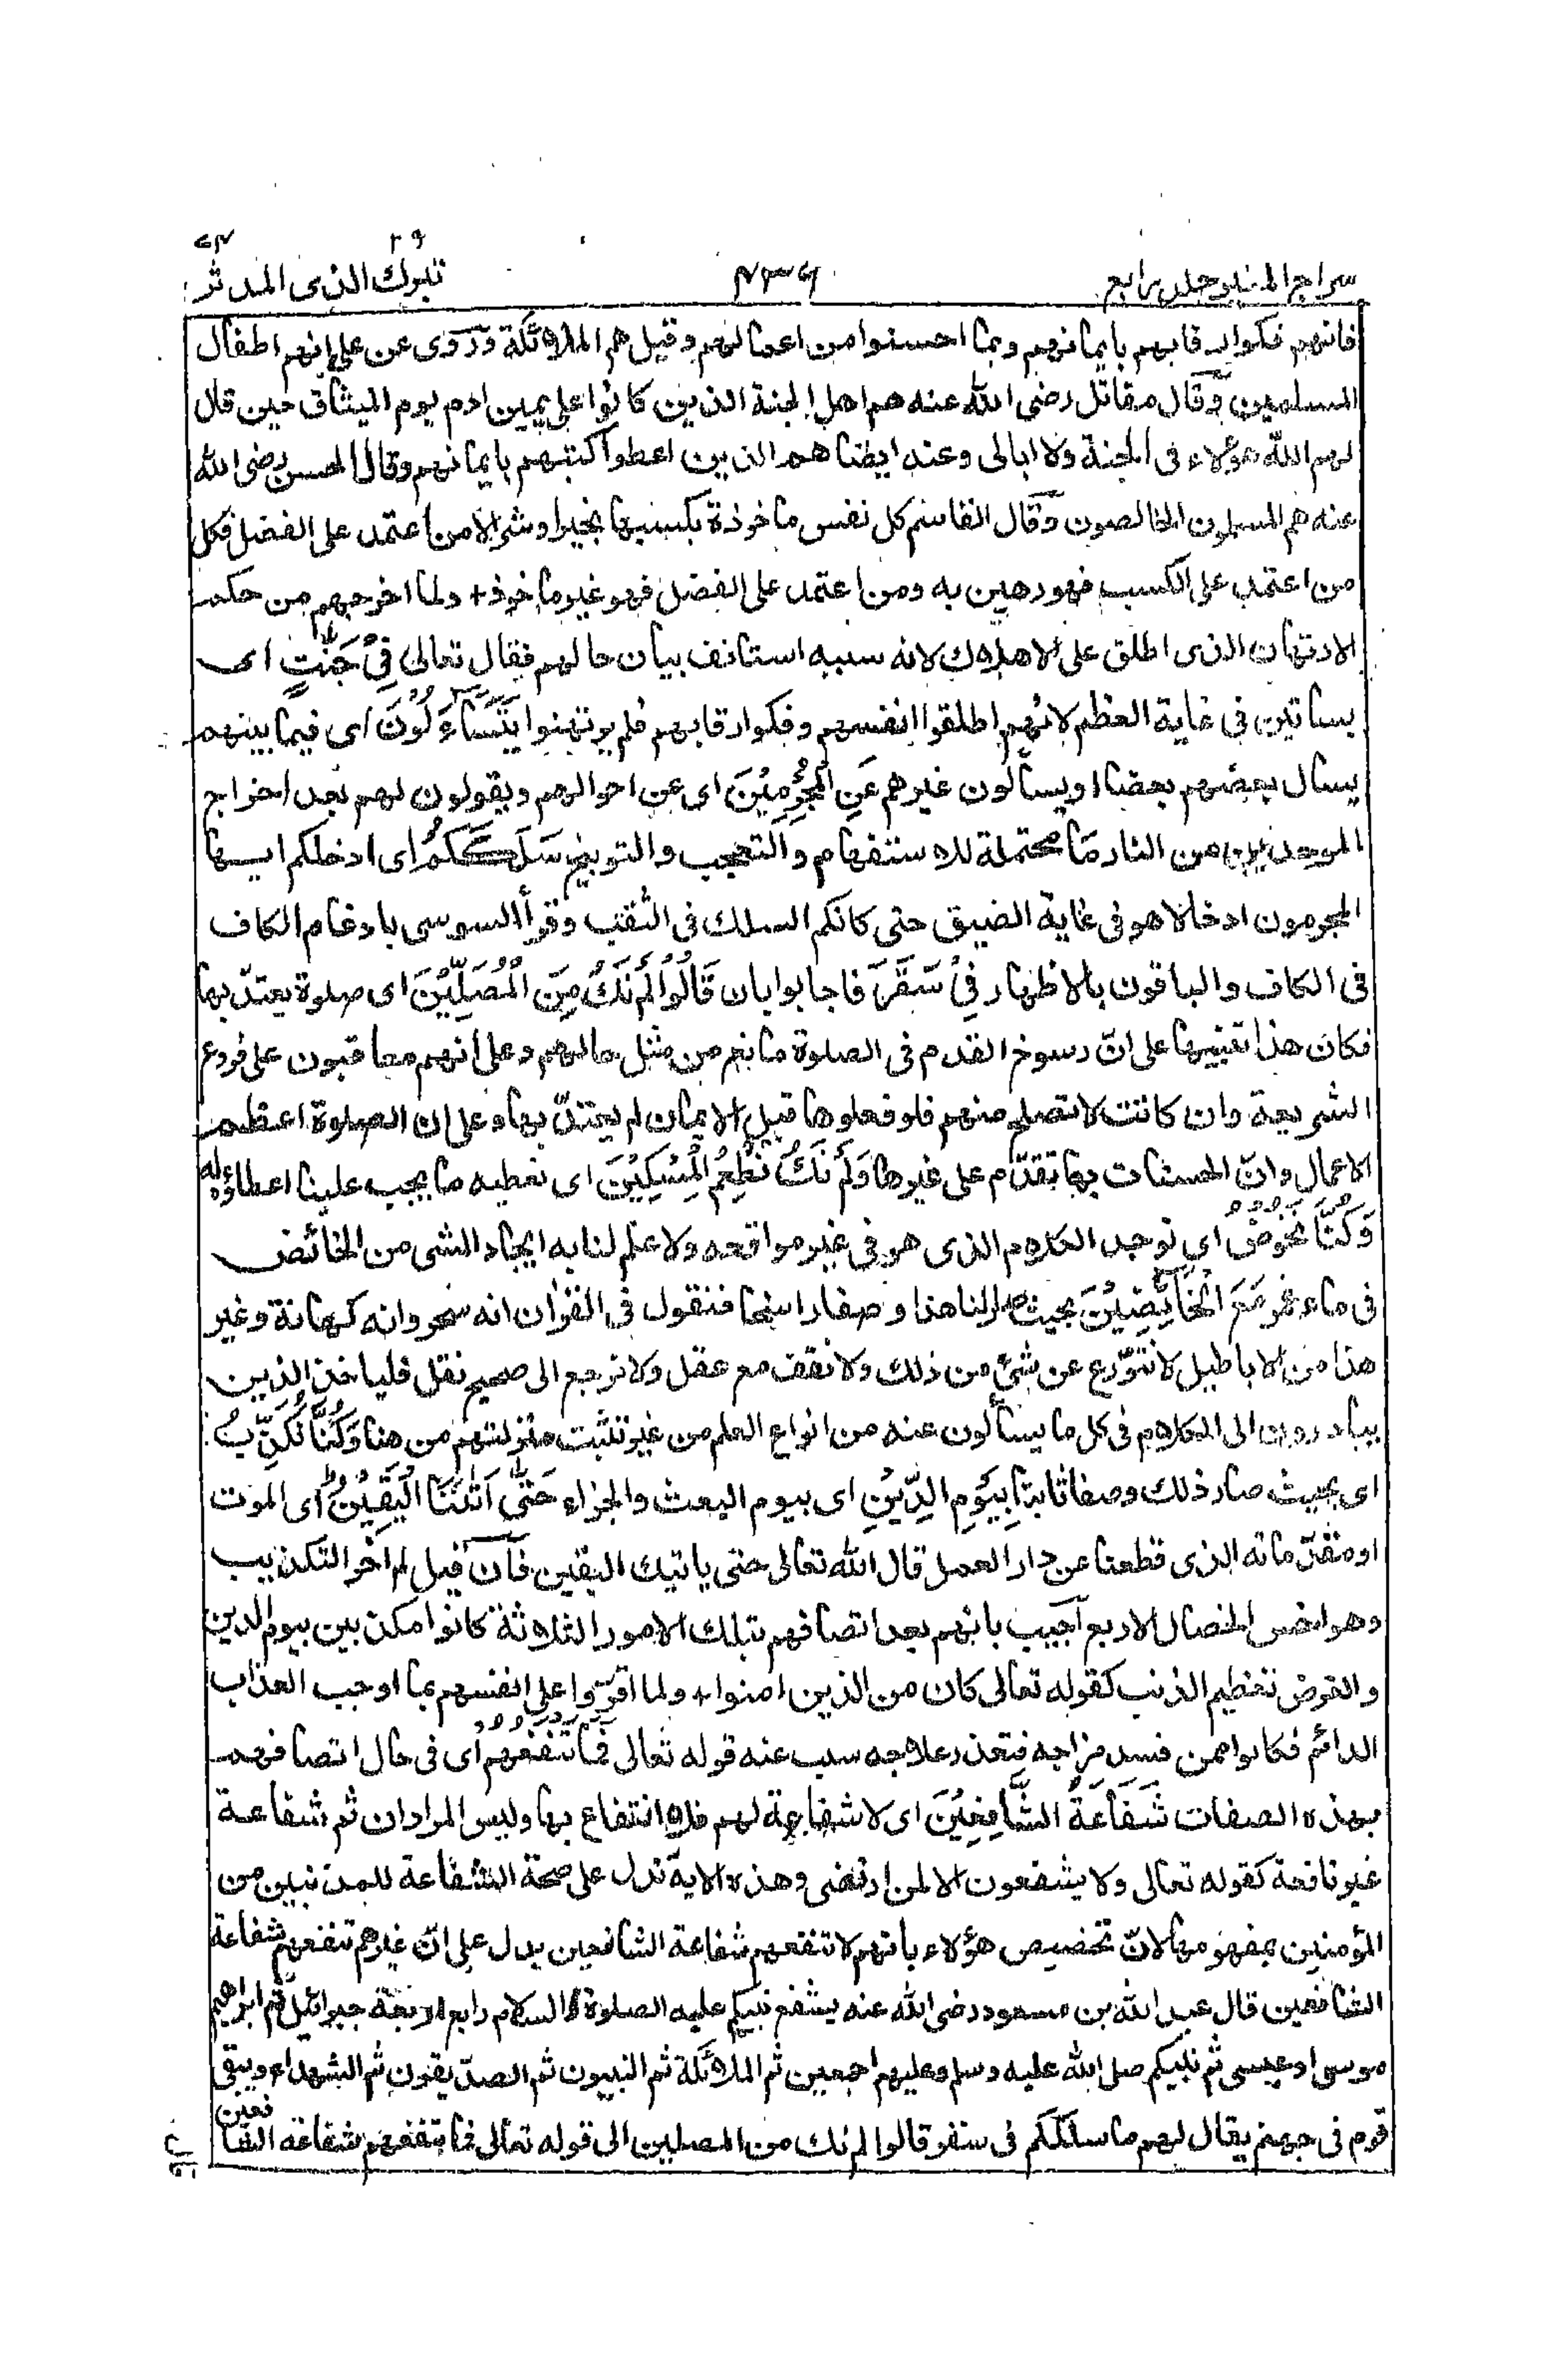 ٢٩ ٧٤
سراج المنير جلد رابع ٤٣٦ تبٰرك الذى المدثر
فانهم فكوا رقابهم بايمانهم وبما احسنوا من اعمالهم وقيل هم الملائكة وَرَوى عن على انهم اطفال
المسلمين وَقال مقاتل رضى الله عنه هم اهل الجنة الذين كانوا على يمين ادم يوم الميثاق حين قال
لهم الله هؤلاء فى الجنة ولا ابالى وعنه ايضا هم الذين اعطوا كتبهم بايمانهم وقال الحسن رضى الله
عنه هم المسلمون الخالصون وَقال القاسم كل نفس ماخوذة بكسبها بخير او شر الا من اعتمد على الفضل فكل
من اعتمد على الكسب فهو رهين به ومن اعتمد على الفضل فهو غير ماخوذ + ولما اخرجهم من حكم
الارتهان الذى اطلق على الاهلاك لانه سببه استانف بيان حالهم فقال تعالى فِىْ جَنّٰتٍ اى
بساتين فى غاية العظم لانهم اطلقوا انفسهم وفكوا رقابهم فلم يرتهنوا يَتَسَآءَلُوْنَ اى فيما بينهم
يسأل بعضهم بعضا او يسألون غيرهم عَنِ الْمُجْرِمِيْنَ اى عن احوالهم ويقولون لهم بعد اخراج
الموحدين من النار مَا محتملة للاستفهام والتعجب والتوبيخ سَلَكَكُمْ اى ادخلكم ايها
المجرمون ادخالا هو فى غاية الضيق حتى كانكم السلك فى الثقب وقرأ السوسى بادغام الكاف
فى الكاف والباقون بالاظهار فِىْ سَقَرَ فاجابوا بان قَالُوْا لَمْ نَكُ مِنَ الْمُصَلِّيْنَ اى صلوة يعتدّ بها
فكان هذا تنبيها على انّ رسوخ القدم فى الصلوة مانع من مثل حالهم وعلى انهم معاقبون على فروع
الشريعة وان كانت لا تصلح منهم فلو فعلوها قبل الايمان لم يعتدّ بها وعلى ان الصلوة اعظم
الاعمال وانّ الحسنات بها تقدّم على غيرها وَلَمْ نَكُ نُطْعِمُ الْمِسْكِيْنَ اى نعطيه ما يجب علينا اعطاؤه له
وَكُنَّا نَخُوْضُ اى نوجد الكلام الذى هو فى غير مواقعه ولا علم لنا به ايجاد الشى من الخائض
فى ماء غمر مَعَ الْخَآئِضِيْنَ بحيث صار لنا هذا وصفا راسخا فنقول فى القراٰن انه سحر وانه كهانة وغير
هذا من الاباطيل لا نتورّع عن شئ من ذلك ولا نقف مع عقل ولا نرجع الى صحيح نقل فلياخذ الذين
يبادرون الى الكلام فى كل ما يسألون عنه من انواع العلم من غير تثبت منزلتهم من هنا وَكُنَّا نُكَذِّبُ
اى بحيث صار ذلك وصفا ثابتا بِيَوْمِ الدِّيْنِ اى بيوم البعث والجزاء حَتّٰى اَتٰنَا الْيَقِيْنُ اى الموت
او مقدّماته الذى قطعنا عن دار العمل قال الله تعالى حتى ياتيك اليقين فَان قيل لم اخر التكذيب
وهو اخس الخصال الاربع اُجيب بانهم بعد اتصافهم بتلك الامور الثلاثة كانوا مكذبين بيوم الدين
والغرض تعظيم الذنب كقوله تعالى كان من الذين امنوا + ولما اقرّوا على انفسهم بما اوجب العذاب
الدائم فكانوا ممن فسد مزاجه فتعذر علاجه سبب عنه قوله تعالى فَمَا تَنْفَعُهُمْ اى فى حال اتصافهم
بهذه الصفات شَفَاعَةُ الشَّافِعِيْنَ اى لا شفاعة لهم فلا انتفاع بها وليس المراد ان ثم شفاعة
غير نافعة كقوله تعالى ولا يشفعون الا لمن ارتضى وهذه الاية تدل على صحة الشفاعة للمذنبين من
المؤمنين بمفهومها لانّ تخصيص هؤلاء بانهم لا تنفعهم شفاعة الشافعين يدل على انّ غيرهم تنفعهم شفاعة
الشافعين قال عبد الله بن مسعود رضى الله عنه يشفع نبيكم عليه الصلوة والسلام رابع اربعة جبرائيل ثم ابراهيم
موسى او عيسى ثم نبيكم صلى الله عليه وسلم وعليهم اجمعين ثم الملائكة ثم النبيون ثم الصدّيقون ثم الشهداء ويبقى
قوم فى جهنم يقال لهم ما سلككم فى سقر قالوا لم نك من المصلين الى قوله تعالى فما تنفعهم شفاعة الشافعين